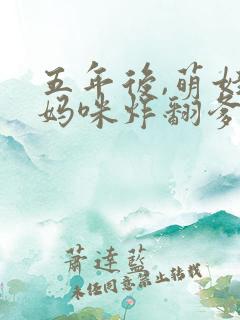 五年後,萌娃
妈咪炸翻爹
蕭達藍
未任同意禁止转载